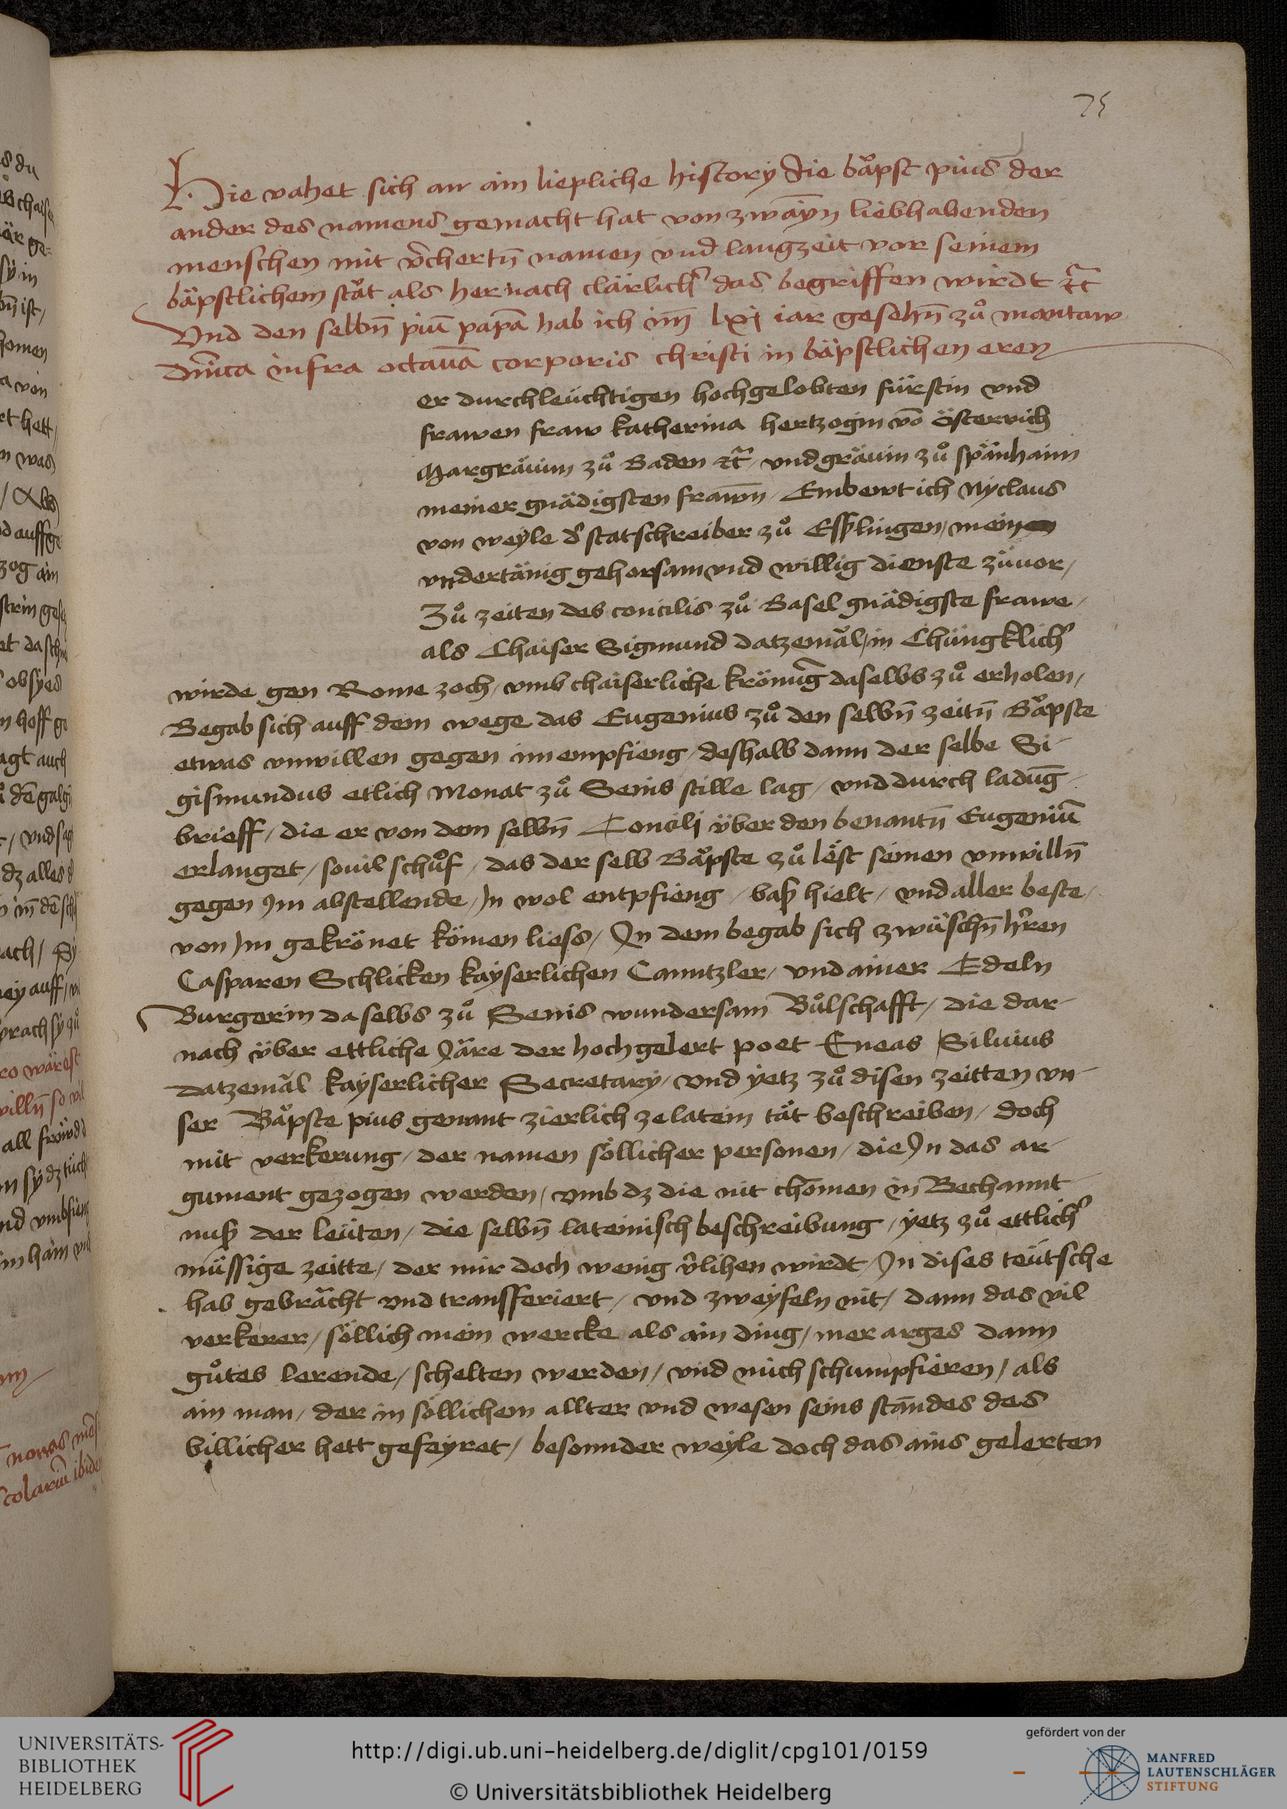 75
Hie vahet sich an ain liepliche history die bāpst pius der
ander des namens gemacht hat von zwāyn liebhabenden
menschen mit v̄chertn̄ namen vnd langzeit vor seinem
bäpstlichem stăt als hernach clärlichꝰ das begriffen wirdt ꝛc̄
Vnd den selbn̄ piū papā hab ich im lxj iar gesehn̄ zů mantaw
dn̄ica infra octauā corporis christi in bäpstlichen eren
er durchleüchtigen hochgelobten fürstin vnd
frawen fraw katherina hertzogin vō österrich
Margräuin zů Baden ꝛc̄ / vnd gräuin zů spänhaim
meiner gnädigsten frawn̄ / Embewt ich Nyclaus
von weyle dꝰ statschreiber zů Esslingen / mein
vndertänig gehorsam vnd willig dienste züuor /
Zů zeiten des concilis zů Basel gnädigste frawe /
als Chaiser Sigmund datzemāl / in Chüngklichꝰ
wirde gen Rome zoch / vmb chaiserliche krönuḡ daselbs zů erholen /
Begab sich auff dem wege das Eugenius zů den selbn̄ zeitn̄ Bāpste
etwas vnwillen gegen im empfieng / deshalb dann der selbe Si-
gismundus etlich Monat zů Senis stille lag / vnd durch laduḡ-
brieff / die er von dem selbn̄ Concili über den benantn̄ Eugeniū
erlanget / souil schůf / das der selb Bāpste zů lest seinen vnwilln̄
gegen Im abstellende / In wol entpfieng / basz hielt / vnd aller beste /
von Im gekrönet kömen liess / In dem begab sich zwüschn̄ hꝰren
Casparen Schlicken kayserlichen Canntzler / vnd ainer Edeln
Burgerin daselbs zů Senis wundersam Bůlschafft / die dar-
nach über ettliche Jāre der hochgelert poet Eneas Siluius
datzemāl kayserlicher Secretary / vnd yetz zů disen zeitten vn-
ser Bāpste pius genant zierlich ze latein tăt beschreiben / doch
mit verkerung / der namen söllicher personen / die In das ar-
gument gezogen werden / vmb dz die nit chomen in Bechannt
nusz der leüten / die selbn̄ lateinisch beschreibung / yetz zů ettlichꝰ
müssige zeitte / der mir doch wenig v̄lihen wirdt / In dises teütsche
hab gebrācht vnd transsferiert / vnd zweyfeln nit / dann das vil
verkerer / söllich mein wercke als ain ding / mer arges dann
gůtes lerende / schelten werden / vnd mich schumpfieren / als
ain man / der in söllichem allter vnd wesen seins standes des
billicher hett gefeyret / besonnder weyle doch das ains gelerten
UNIVERSITÄTS-
BIBLIOTHEK
HEIDELBERG
http://digi.ub.uni-heidelberg.de/diglit/cpg101/0159
© Universitätsbibliothek Heidelberg
gefördert von der
MANFRED
LAUTENSCHLÄGER
STIFTUNG